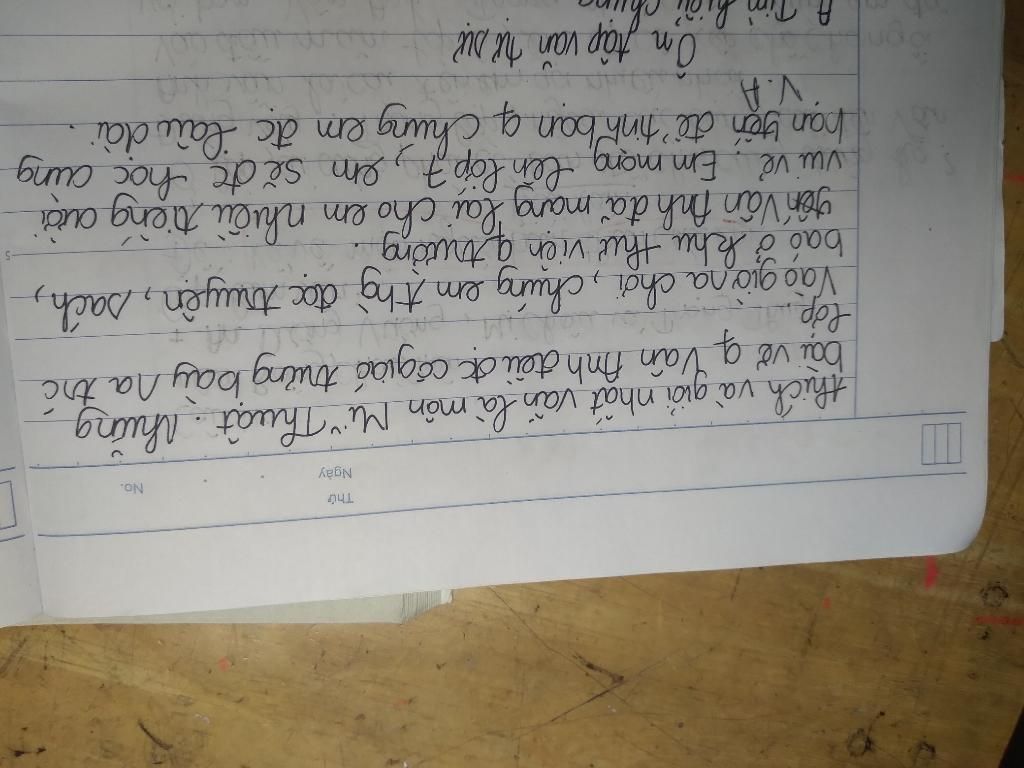 Thứ
Ngày
No.
thích và giỏi nhất vẫn là môn Mĩ Thuật. Những
bài vẽ q Vân Anh đều đc cô giáo trưng bày ra trc
lớp
Vào giờ ra chơi, chúng em thg đọc truyện, sách,
báo ở khu thư viện q trường.
Vân Anh đã mang lại cho em nhiều tiếng cười
vui vẻ. Em mong lên lớp 7, em sẽ đc học cùng
bạn để tình bạn q chúng em đc lâu dài.
V.A
Ôn tập văn tự sự
A Tìm hiểu chung